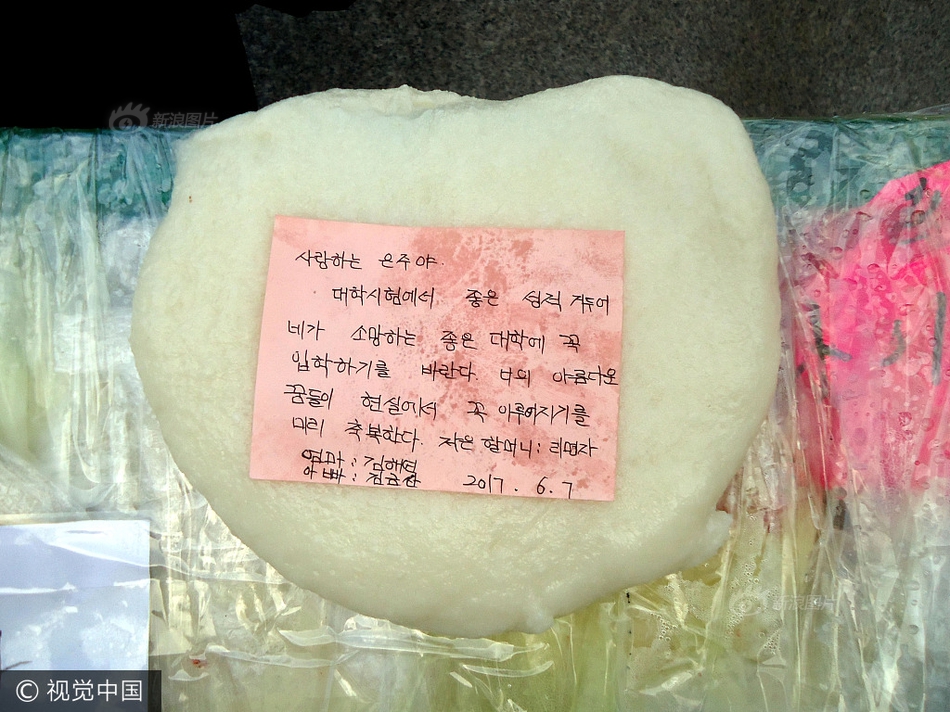 新浪图片
사랑하는 은주야.
대학시험에서 좋은 성적 거두어
네가 소망하는 좋은 대학에 꼭
입학하기를 바란다. 너의 아름다운
꿈들이 현실에서 꼭 이루어지기를
미리 축복한다. 작은 할머니: 리명자
엄마: 김해영
아빠:
2017. 6. 7
新浪图片
© 视觉中国